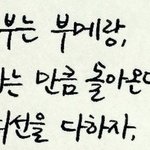 부는 부메랑,
는 만큼 돌아온다
최선을 다하자.